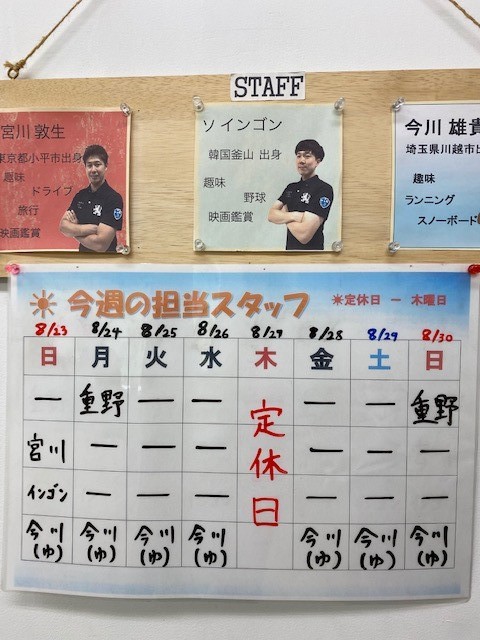 STAFF
宮川 敦生
東京都小平市出身
趣味
ドライブ
旅行
映画鑑賞
ソ インゴン
韓国釜山 出身
趣味
野球
映画鑑賞
今川 雄貴
埼玉県川越市出
趣味
ランニング
スノーボード
今週の担当スタッフ
※定休日 ー 木曜日
8/23 8/24 8/25 8/26 8/27 8/28 8/29 8/30
日 月 火 水 木 金 土 日
ー 重野 ー ー ー ー 重野
宮川 ー ー ー ー ー ー
インゴン ー ー ー ー ー ー
定休日
今川 今川 今川 今川 今川 今川 今川
(ゆ) (ゆ) (ゆ) (ゆ) (ゆ) (ゆ) (ゆ)